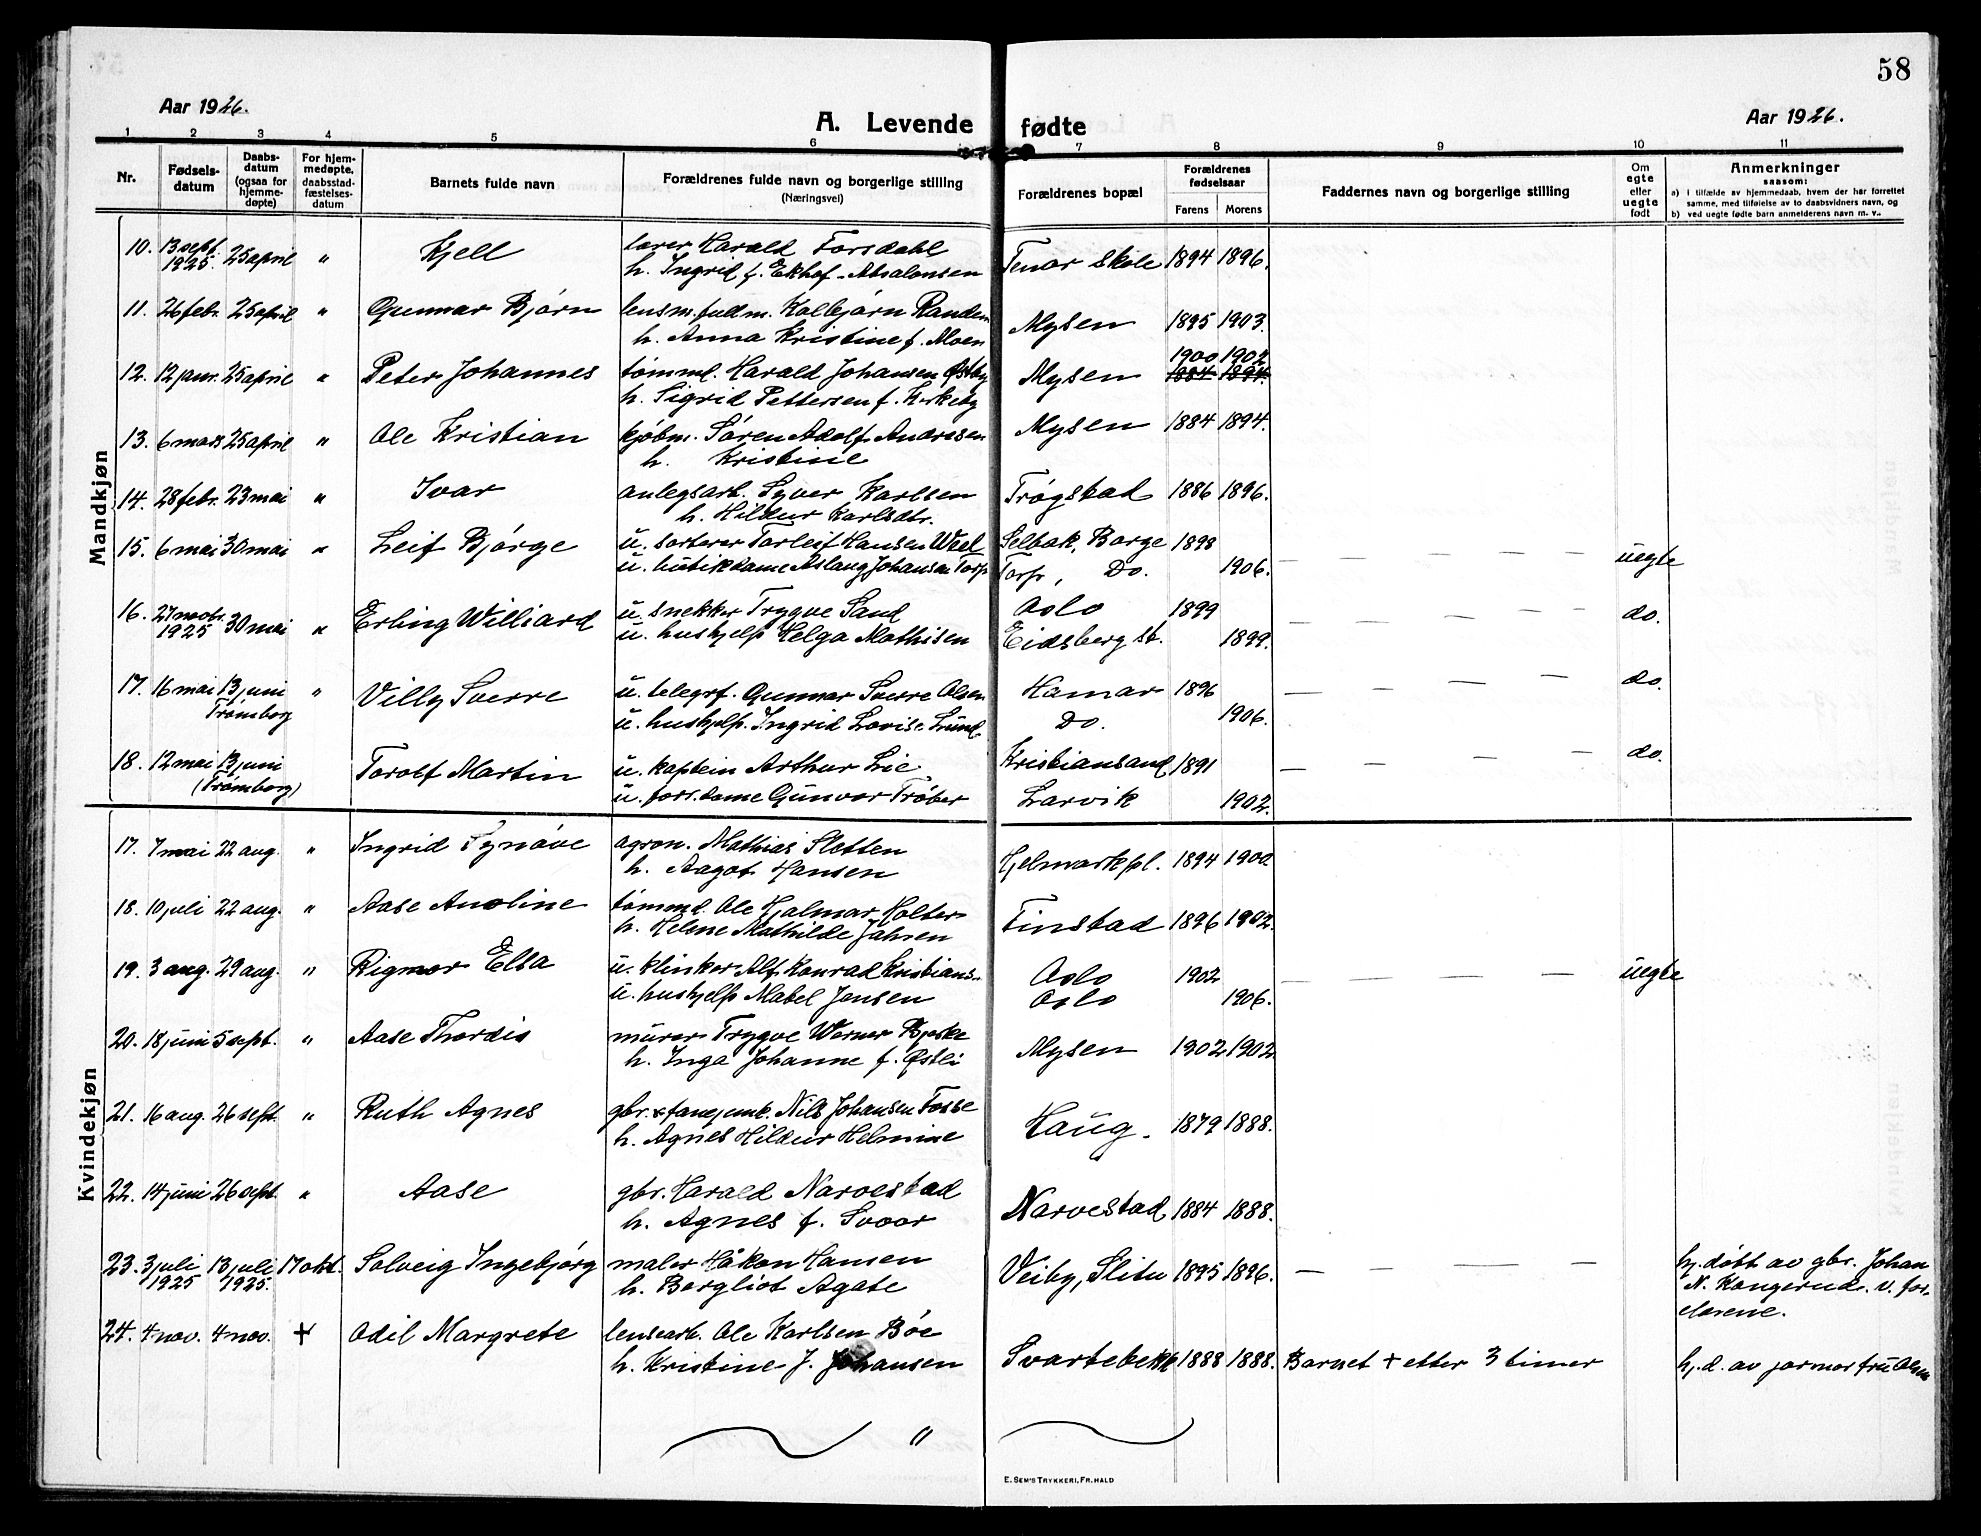 58
Aar 1926.
A. Levende fødte
Aar 1926.
1 2 3 4 5 6 7 8 9 10 11
Nr.
Fødsels-
datum
Daabs-
datum
(ogsaa for
hjemme-
døpte)
For hjem-
medøpte,
daabsstad-
fæstelses-
datum
Barnets fulde navn
Forældrenes fulde navn og borgerlige stilling
(Næringsvei)
Forældrenes bopæl
Forældrenes
fødselsaar
Farens Morens
Faddernes navn og borgerlige stilling
Om
egte
eller
uegte
født
Anmerkninger
saasom:
a) i tilfælde av hjemmedaab, hvem der har forrettet
samme, med tilføielse av to daabsvidners navn, og
b) ved uegte fødte barn anmelderens navn m. v..
Mandkjøn
10. 13 sept. 1925. 25 april " Kjell lærer Harald Torsdahl Tenor skole 1894 1896.
h. Ingrid f. Ekhof-Absalonsen
11. 26 febr. 25 april " Gunnar Bjørn lensm.fuldm. Kolbjørn Randem Mysen 1895 1903.
h. Anna Kristine f. Moen
12. 12 janr. 25 april " Peter Johannes tømmd. Harald Johansen Østby Mysen 1900 1902
1884 1894.
h. Sigrid Pettersen f. Kirkeby
13. 6 mars 25 april " Ole Kristian kjøbm. Søren Adolf Andresen Mysen 1884 1894.
h. Kristine
14. 28 febr. 23 mai " Ivar anlegsarb. Syver Karlsen Trøgstad 1886 1896.
h. Hildur Karlsdtr.
15. 6 mai 30 mai " Leif Bjørge u. sorterer Torleif Hansen Weel Selbak, Borge 1898
u. butikdame Aslaug Johansen Torp Torp, Do. 1906. uegte
16. 27 novbr. 1925 30 mai " Erling Williard u. snekker Trygve Sand Oslo 1899 do.
u. hushjelp Helga Mathisen Eidsberg st. 1899.
17. 16 mai 13 juni " Villy Sverre u. telegrf. Gunnar Sverre Olsen Hamar 1896 do.
Trømborg
u. hushjelp. Ingrid Lovise Lund. Do. 1906.
18. 12 mai 13 juni Torolf Martin u. kaptein Arthur Lie Kristiansand 1891 do.
(Trømborg)
u. forr.dame Gunvor Trøber Larvik 1902.
Kvindekjøn
17. 7 mai 22 aug. " Ingrid Synøve agron. Mathias Sletten Hjelmark pl. 1894 1900.
h. Aagot Hansen
18. 10 juli 22 aug. " Aase Anoline tømmd. Ole Hjalmar Holter Finstad 1896 1902.
h. Helene Mathilde Jahren
19. 3 aug. 29 aug. " Rigmor Elsa u. klinker Alf Konrad Kristians. Oslo 1902 uegte
u. hushjelp Mabel Jensen Oslo 1906.
20. 18 juni 5 sept. " Aase Thordis murer Trygve Werner Bjerke Mysen 1902 1902
h. Inga Johanne f. Østli
21. 16 aug. 26 sept. " Ruth Agnes Nils Johansen Fosse Haug. 1879 1888.
h. Agnes Hildur Helmine
22. 14 juni 26 sept. " Aase gbr. Harald Narvestad Narvestad 1884 1888.
h. Agnes f. Svoor
23. 3 juli 1925 13 juli 1925. 17 okt. Solveig Ingebjørg maler Håkon Hansen Veiby, Slitu 1895 1896. hj. døbt av gbr. Johan
h. Bergliot Agate N. Kongerud. v. for-
eldrene.
24. 4 nov. 4 nov. + Odil Margrete lensearb. Ole Karlsen Bøe
h. Kristine J. Johansen Svartebekk 1888 1888. Barnet + etter 3 timer hj. d. av jormor fru Olsen
"
E. SEM'S TRYKKERI, FR.HALD